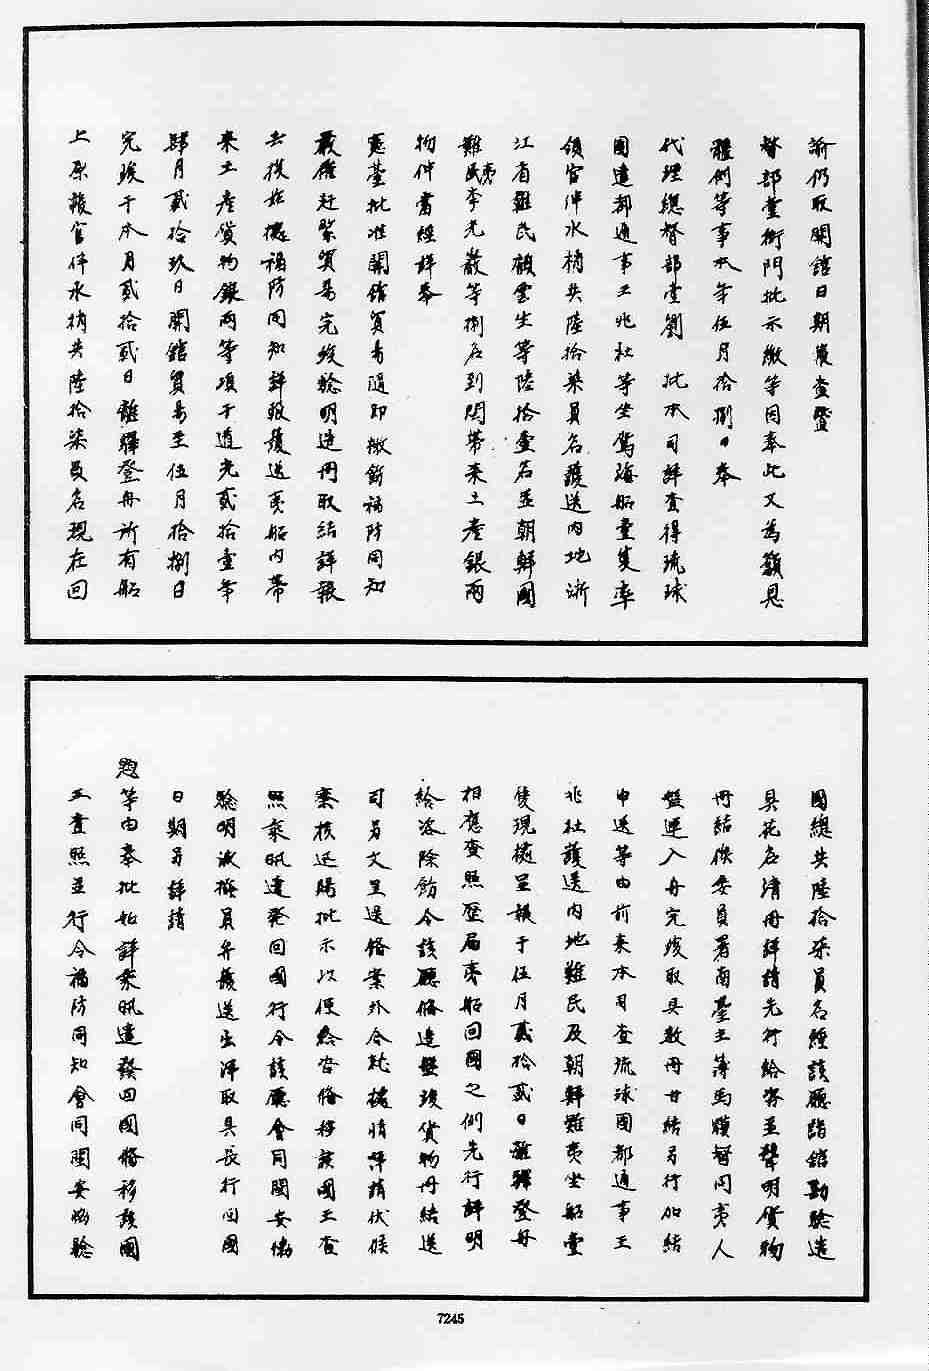 諭仍取開館日期覆查暨
督部堂衙門批示繳等因奉此又為籲恩
體例等事本年伍月拾捌日奉
代理總督部堂劉 批本司詳查得琉球
國遣都通事王兆杜等坐駕海船壹隻率
領官伴水梢共陸拾柒員名護送內地浙
江省難民顧雲生等陸拾壹名並朝鮮國
難夷民李光嚴等捌名到閩帶來土產銀兩
物件書經詳奉
憲臺批准開館貿易隨即檄飭福防同知
嚴催赶緊貿易完竣驗明造冊取結詳報
去後茲據福防同知詳報護送夷船內帶
來土產貨物銀兩等項于道光貳拾壹年
肆月貳拾玖日開館貿易至伍月拾捌日
完竣于本月貳拾貳日離驛登舟所有船
上原報官伴水梢共陸拾柒員名現在回
國總共陸拾柒員名經該廳詣館勘驗造
具花名清冊詳請先行給咨並聲明貨物
冊結俟委員署南臺主簿馬督同夷人
盤運入舟完竣取具數冊甘結另行加結
申送等由前來本司查琉球國都通事王
兆杜護送內地難民及朝鮮難夷坐船壹
隻現據呈報于伍月貳拾貳日離驛登舟
相應查照歷屆夷船回國之例先行詳明
給咨除飭令該廳俻造盤竣貨物冊結送
司另文呈送俻案外合就據情詳請伏候
察核迅賜批示以便繕咨俻移該國王查
照乘汛遣發回國行令該廳會同閩安協
驗明派撥員弁護送出洋取具長行回國
日期另詳請
題等由奉批如詳乘汛遣發回國俻移該國
王查照並行令福防同知會同閩安協驗
7245